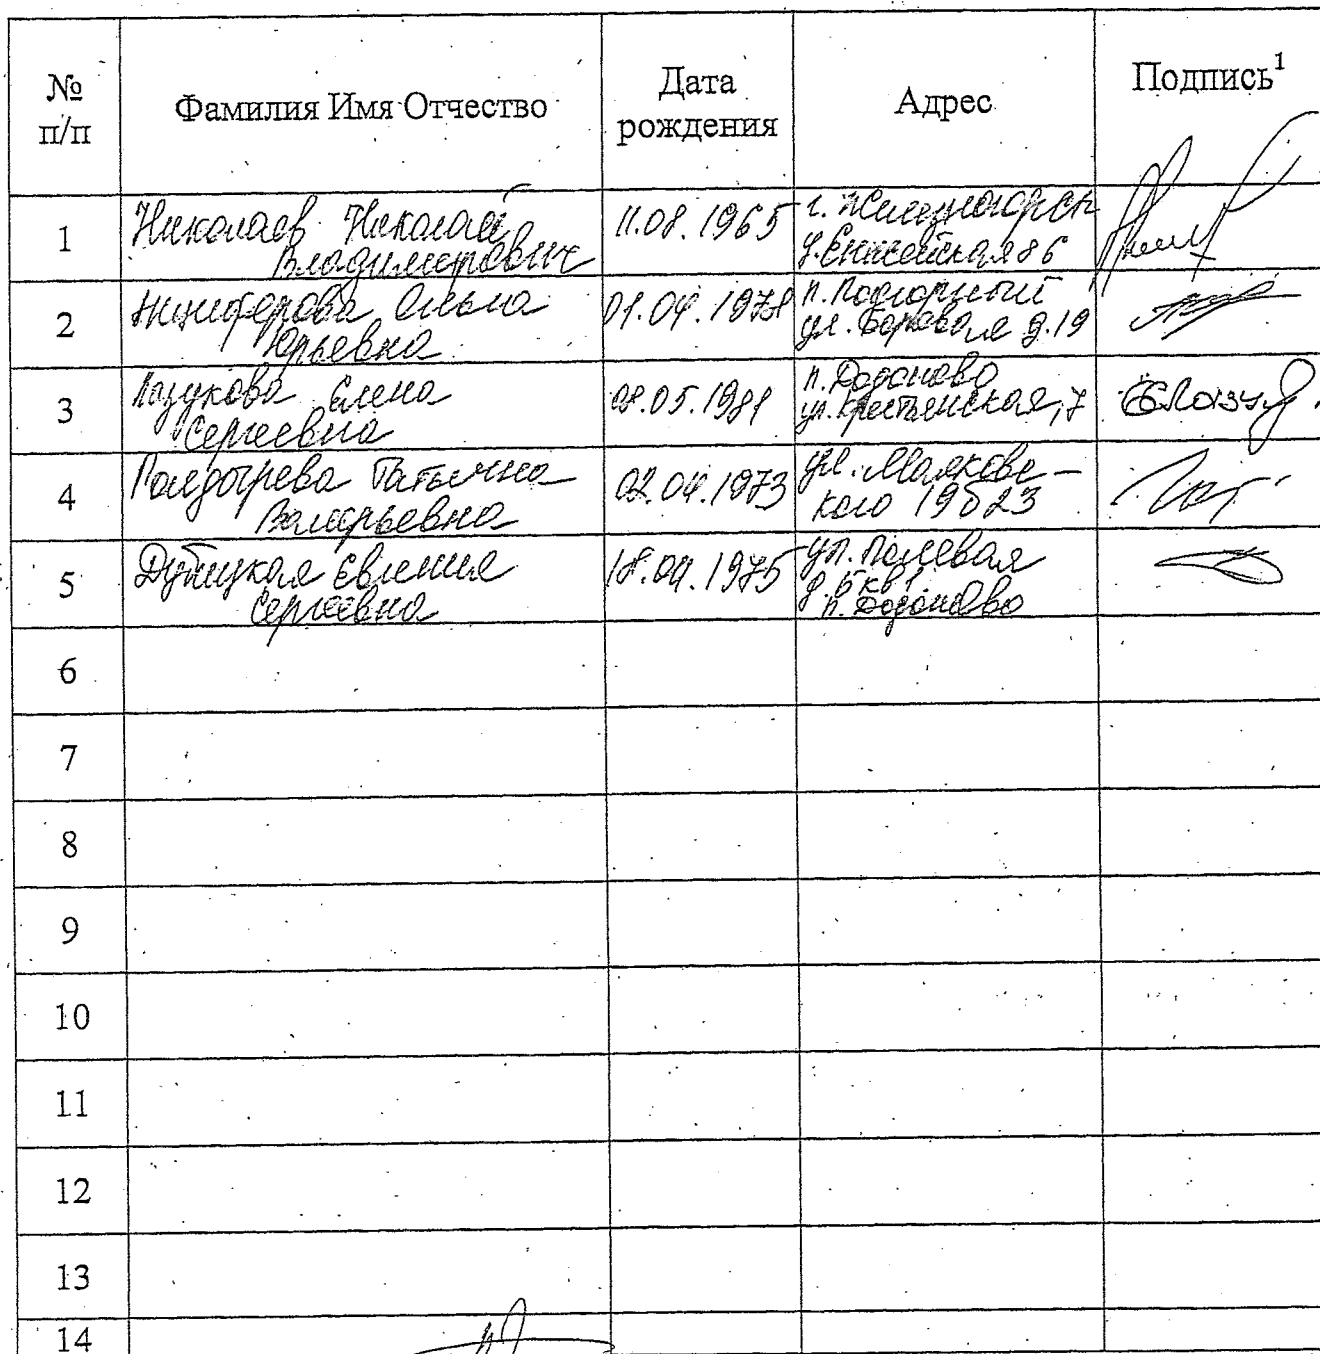 № п/п Фамилия Имя Отчество Дата рождения Адрес Подпись¹
1 Николаев Николай Владимирович 11.08.1965 г. Железногорск у. Енисейская 86
2 Никифорова Ольга Юрьевна 01.04.1978 п. Подгорный ул. Боровая д.19
3 Лазукова Елена Сергеевна 08.05.1981 п. Додоново ул. Крестьянская, 7
4 Татьяна Валерьевна 02.04.1973 ул. Маяковского 19б 23
5 Евгения Сергеевна 18.04.1975 ул. Полевая д. 5 кв 1 п. Додоново
6
7
8
9
10
11
12
13
14